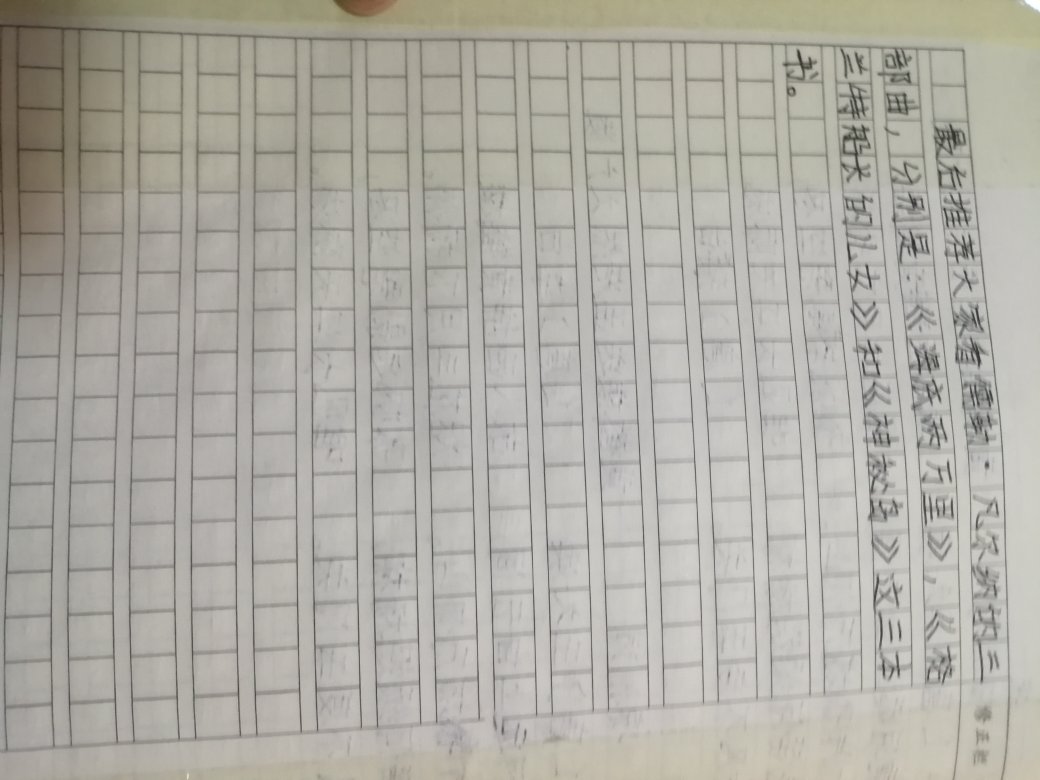 最后推荐大家看儒勒·凡尔纳的三
部曲，分别是：《海底两万里》，《格
兰特船长的儿女》和《神秘岛》这三本
书。
修正栏